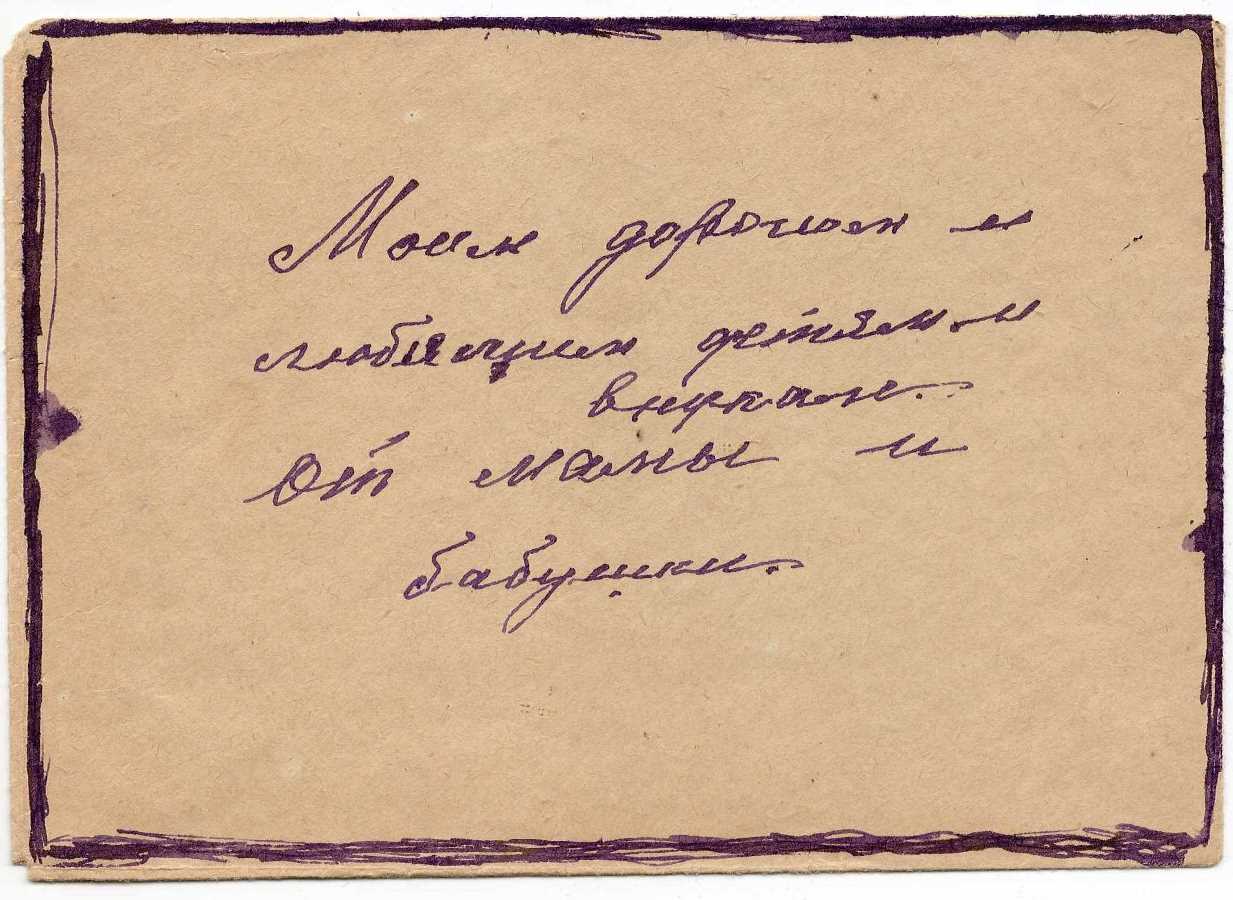 Моим дорогим и
любящим детям и
внукам.
От мамы и
бабушки.